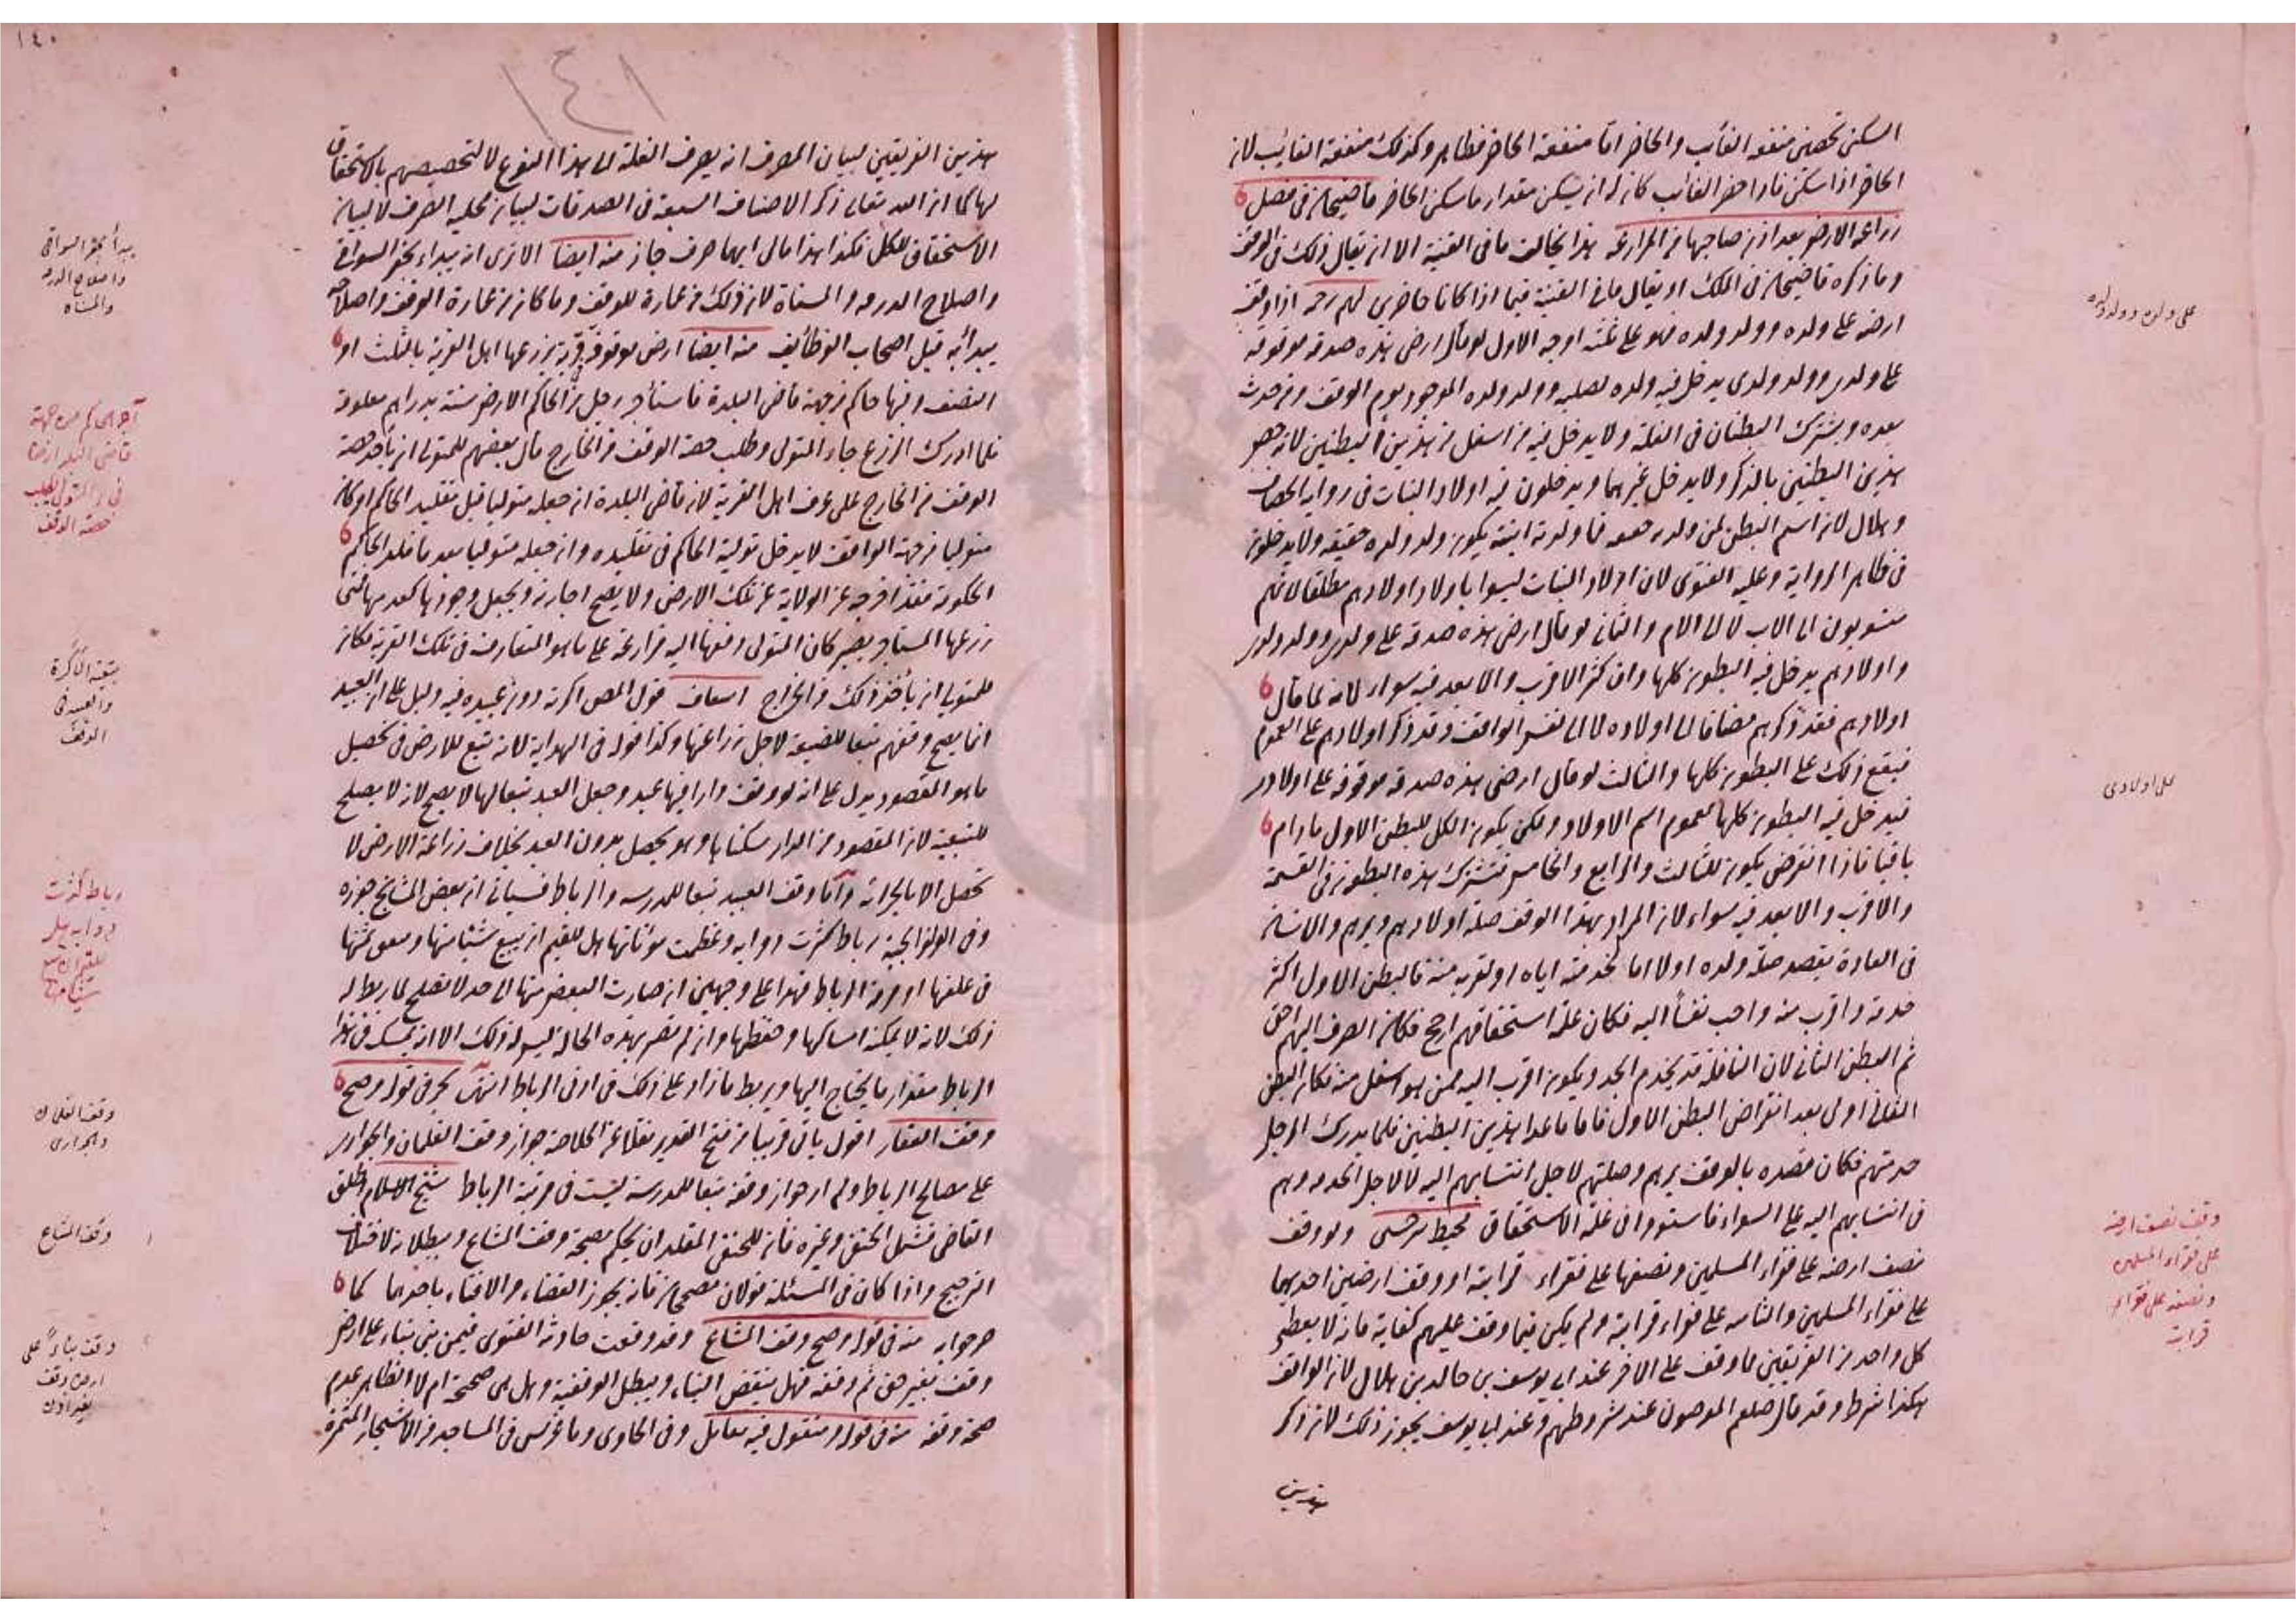 السكنى تحصين منفعة الغائب والحاضر اما منفعة الحاضر فظاهر وكذلك منفعة الغائب لان
الحاضر اذا سكن فاذا حضر الغائب كان له ان يسكن مقدار ما سكن الحاضر قاضيخان في فصل
زراعة الارض بعد اذن صاحبها من المزارعة هذا يخالف ما في القنية الا ان يقال ذلك في الوقف
وما ذكره قاضيخان في الملك او يقال ما في القنية فيما اذا كانا حاضرين اذا وقف
ارضه على ولده وولد ولده فهو على ثلثة اوجه الاول لو قال ارضي هذه صدقة موقوفة
على ولدي وولد ولدي يدخل فيه ولده لصلبه وولد ولده الموجود يوم الوقف ومن حدث
بعده ويشترك البطنان في الغلة ولا يدخل فيه من اسفل من هذين البطنين لانه خص
هذين البطنين بالذكر ولا يدخل غيرهما ويدخلون فيه اولاد البنات في رواية الخصاف
وهلال لان اسم البطن لمن ولده حقيقة فما ولدته ابنته يكون ولد ولده حقيقة ولا يدخلون
في ظاهر الرواية وعليه الفتوى لان اولاد البنات ليسوا باولاد اولادهم مطلقا لانهم
منسوبون الى الاب لا الى الام والثاني لو قال ارضي هذه صدقة على ولدي وولد ولدي
واولادهم يدخل فيه البطون كلها وان كثر الاقرب والابعد فيه سواء لانه لما قال
اولادهم فقد ذكرهم مضافا الى اولاده لا الى نفس الواقف وقد ذكر اولادهم على العموم
فيقع ذلك على البطون كلها والثالث لو قال ارضي هذه صدقة موقوفة على اولادي
فيدخل فيه البطون كلها لعموم اسم الاولاد ولكن يكون الكل للبطن الاول ما دام
باقيا فاذا انقرض يكون للثالث والرابع والخامس فتشترك هذه البطون في القسمة
والاقرب والابعد فيه سواء لان المراد بهذا الوقف صلة اولادهم وبرهم والانسان
في العادة يقصد صلة ولده اولا اما لخدمته اياه او لقربه منه فالبطن الاول اكثر
خدمة واقرب منه واحب نفسا اليه فكان علة استحقاقهم ارجح فكان الصرف اليهم احق
ثم البطن الثاني لان النافلة قد يخدم الجد ويكون اقرب اليه ممن هو اسفل منه فكان البطن
الثاني اولى بعد انقراض البطن الاول فاما ما عدا هذين البطنين فلما يدرك الرجل
خدمتهم فكان قصده بالوقف برهم وصلتهم لاجل انتسابهم اليه لا لاجل الخدمة وهم
في انتسابهم اليه على السواء فاستووا في علة الاستحقاق محيط سرخسي ولو وقف
نصف ارضه على فقراء المسلمين ونصفها على فقراء قرابته او وقف ارضين احديهما
على فقراء المسلمين والثانية على فقراء قرابته ولم يكن فيما وقف عليهم كفاية فانه لا يعطى
كل واحد من الفريقين مما وقف على الاخر عند ابي يوسف بن خالد بن هلال لان الواقف
هكذا شرط وقد قال صلعم المؤمنون عند شروطهم وعند ابي يوسف يجوز ذلك لانه ذكر
هذين
على ولده وولد ولده
على اولادي
وقف نصف ارضه
على فقراء المسلمين
ونصفه على فقراء
قرابته
١٤٠
١٤١
هذين الفريقين لبيان المصرف انه يصرف الغلة الى هذا النوع لا لتخصيصهم بالاستحقاق
لها كما ان الله تعالى ذكر الاصناف السبعة في الصدقات لبيان محلية الصرف لا لبيان
الاستحقاق للكل فكذا هذا فالى ايهما صرف جاز منه ايضا الا ترى انه يبداء بحفر السواقي
واصلاح الدرمه والمسناة لان ذلك من عمارة للوقف وما كان من عمارة الوقف واصلاحه
يبدأ به قبل اصحاب الوظائف منه ايضا ارض موقوفة في قرية يزرعها اهل القرية بالثلث او
النصف وفيها حاكم من جهة قاضي البلدة فاستأجر رجل من الحاكم الارض سنة بدراهم معلومة
فلما ادرك الزرع جاء المتولي وطلب حصة الوقف من الخارج قال بعضهم للمتولي ان يأخذ حصة
الوقف من الخارج على عرف اهل القرية لان قاضي البلدة ان جعله متوليا قبل تقليد الحاكم او كان
متوليا من جهة الواقف لا يدخل تولية الحاكم في تقليده وان جعله متوليا بعد ما قلد الحاكم
الحكومة فقد اخرجه عن الولاية عن تلك الارض ولا يصح اجارته ويجعل وجودها كعدمها فمتى
زرعها المستأجر يصير كان المتولي دفعها اليه مزارعة على ما هو المتعارف في تلك القرية فكان
للمتولي ان يأخذ ذلك من الخراج اسعاف قول المص اكرته دون عبيده فيه دليل على ان العبيد
انما يصح وقفهم تبعا للضيعة لاجل زراعتها وكذا قوله في الهداية لانه تبع للارض في تحصيل
ما هو المقصود يدل على انه لو وقف دارا فيها عبد وجعل العبد تبعا لها لا يصح لانه لا يصلح
للتبعية لان المقصود من الدار سكناها وهو يحصل بدون العبد بخلاف زراعة الارض لا
تحصل الا بالحراثة واما وقف العبيد تبعا للمدرسة والرباط فسيأتي ان بعض المشايخ جوزه
وفي الولوالجية رباط كثرت دوابه وعظمت مؤناتها هل للقيم ان يبيع شيئا منها وينفق ثمنها
في علفها او مرمة الرباط فهذا على وجهين ان صارت البعض منها الى حد لا تصلح لما ربط له
ذلك لانه لا يمكنه امساكها وحفظها وان لم تصر بهذه الحالة ليس له ذلك الا انه يمسك في هذا
الرباط مقدار ما يحتاج اليها ويربط ما زاد على ذلك في ادنى الرباط انتهى بحر في قوله وصح
وقف العقار اقول يأتي قريبا من فتح القدير نقلا عن الخلاصة جواز وقف الغلمان والجواري
على مصالح الرباط ولم ار جواز وقفه تبعا للمدرسة ليست في مرتبة الرباط شيخ الاسلام اطلق
القاضي فشمل الحنفي وغيره فان للحنفي المقلد ان يحكم بصحة وقف المشاع وببطلانه لاختلاف
الترجيح واذا كان في المسئلة قولان مصححان فانه يجوز القضاء والافتاء باحدهما كما
صرحوا به منه في قوله وصح وقف المشاع وقد وقعت حادثة الفتوى فيمن بنى بناء على ارض
وقف بغير حق ثم وقفه فهل ينقض البناء ويبطل الوقفية وهل هي صحيحة ام لا الظاهر عدم
صحة وقفه منه في قوله ومنقول فيه تعامل وفي الحاوي وما غرس في المساجد من الاشجار المثمرة
يبدأ بحفر السواقي
واصلاح الدرمه
والمسناه
آجر الحاكم من جهة
قاضي البلد ارضا
حصة الوقف
والعبد في
الوقف
رباط كثرت
دوابه هل
للقيم ان يبيع
شيئا منها
وقف الغلمان
والجواري
وقف المشاع
وقف بناءً على
ارض وقف
بغير اذن